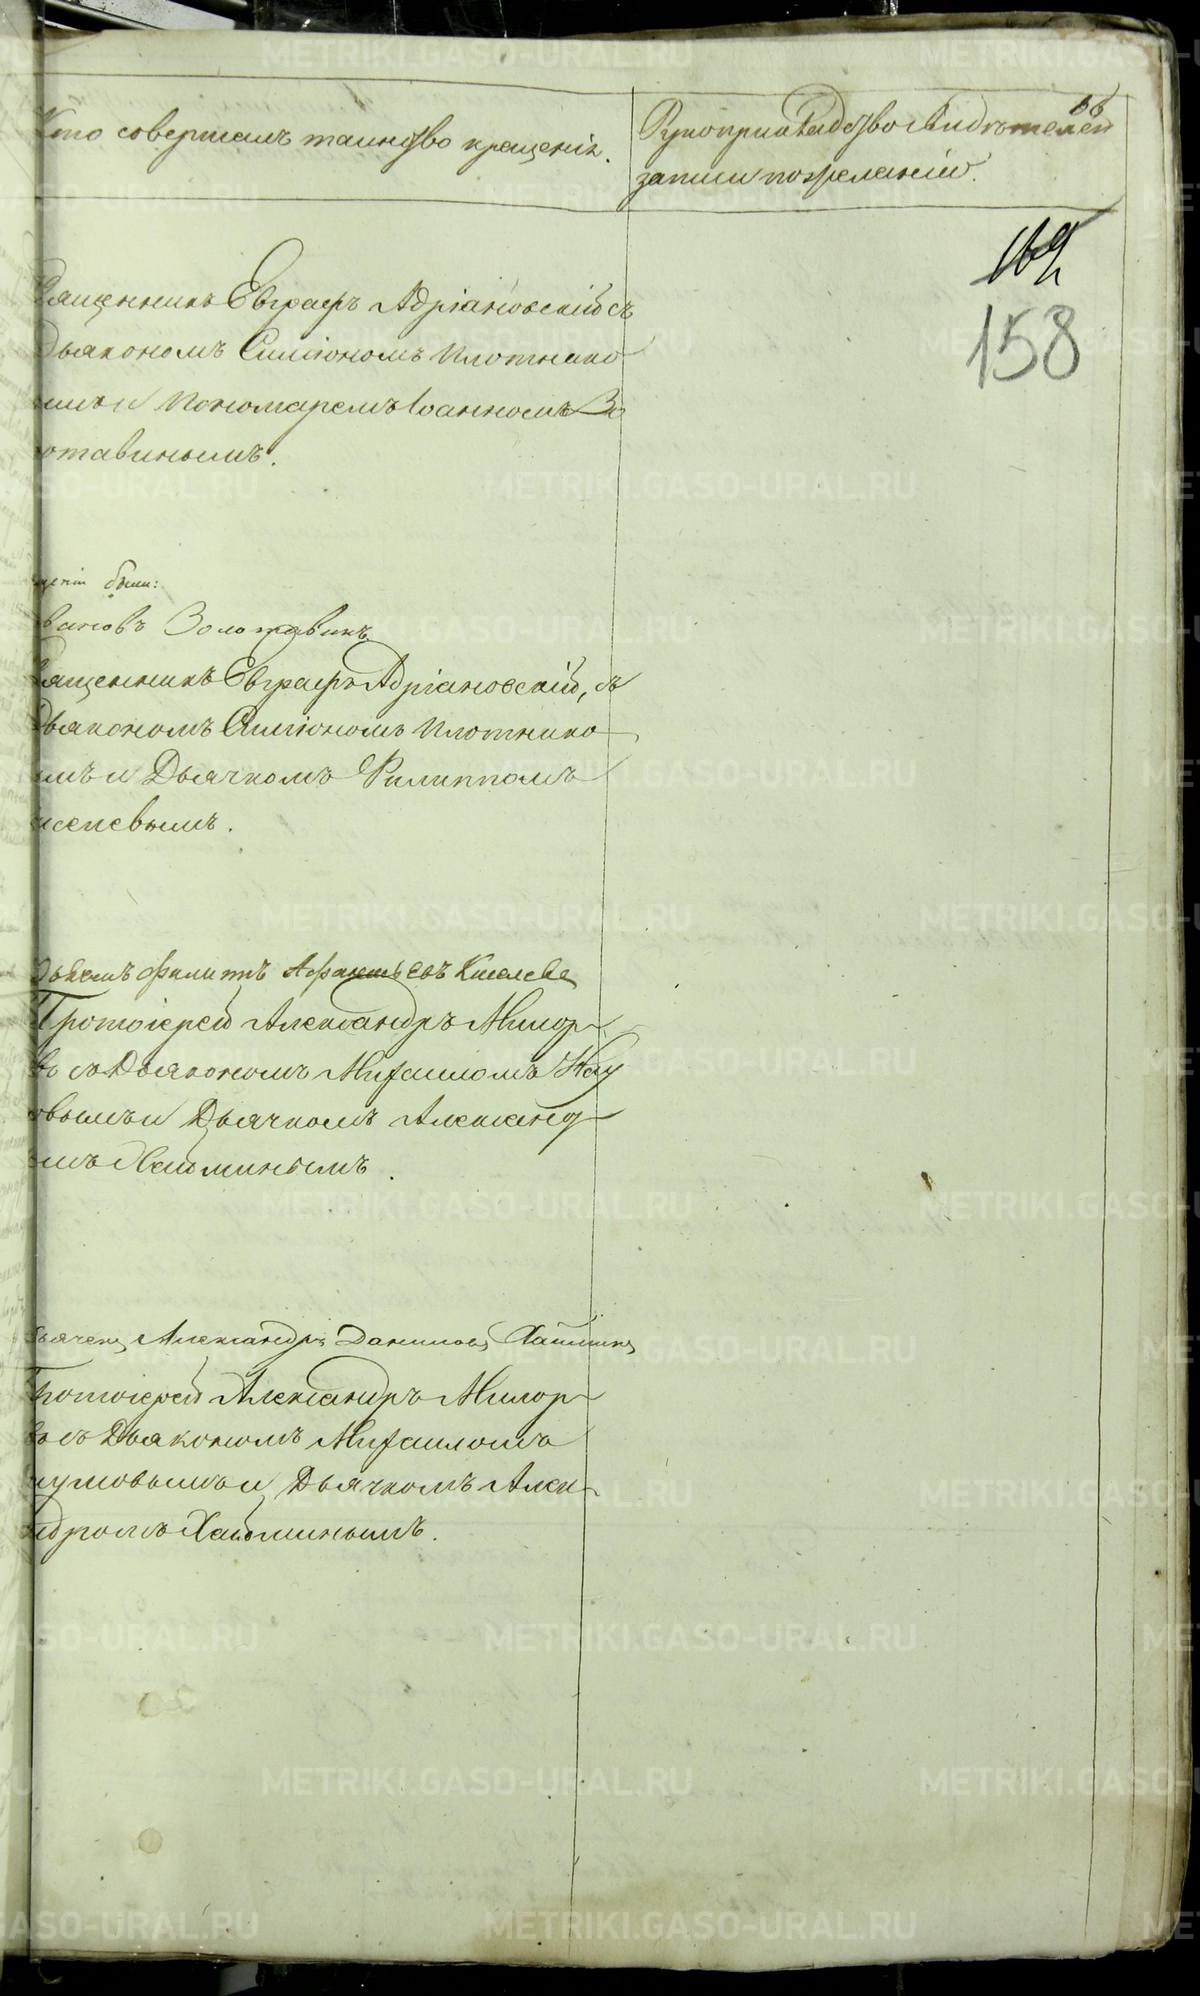 Кто совершалъ таинство крещенія.
Рукоприкладство свидѣтелей
записи по желанію.
158
Священникъ Евграфъ Адріановскій съ
Дьякономъ Симіономъ Плотнико
вымъ и Пономаремъ Іоанномъ Зо
лотавинымъ.
щеніи были:
вановъ Золотавинъ
Священникъ Евграфъ Адріановскій, съ
Дьякономъ Симіономъ Плотнико
вымъ и Дьячкомъ Филиппомъ
Киселевымъ.
Филиппъ Афанасьевъ Киселевъ
Протоіерей Александръ Мишор-
въ съ Дьякономъ Михаиломъ Нау
мовымъ и Дьячкомъ Александ-
ромъ Хайминымъ.
Дьячекъ Александръ Даниловъ Хайминъ
Протоіерей Александръ Мишор-
въ съ Дьякономъ Михаиломъ
Наумовымъ и Дьячкомъ Алек-
сандромъ Хайминымъ.
METRIKI.GASO-URAL.RU